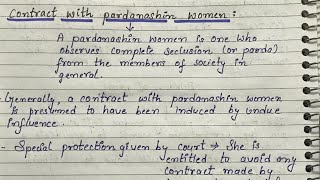 Contract with pardanashin women :
A pardanashin women is one who
observes complete seclusion (or parda)
from the members of society in
general.
- Generally, a contract with pardanashin women
is presumed to have been induced by undue
influence.
- Special protection given by court → She is
entitled to avoid any
contract made by